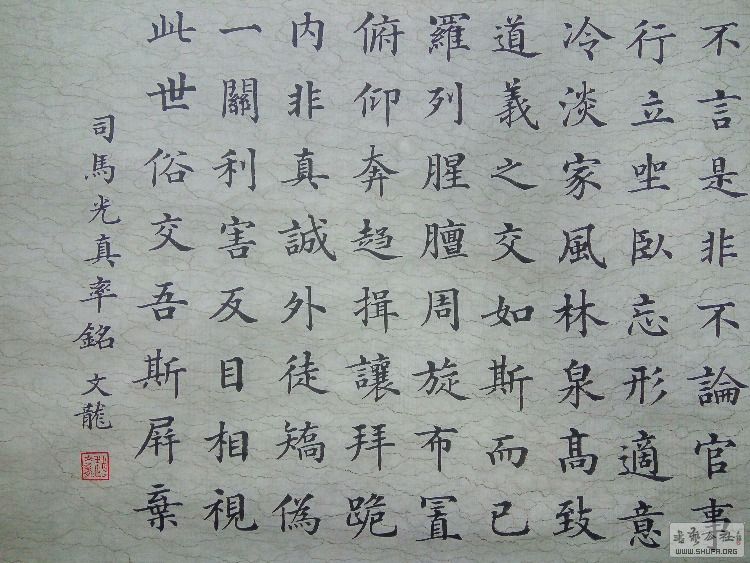 不言是非不論官事
行立坐臥忘形適意
冷淡家風林泉高致
道義之交如斯而已
羅列腥膻周旋布置
俯仰奔趨揖讓拜跪
内非真誠外徒矯偽
一關利害反目相視
此世俗交吾斯屏棄
司馬光真率銘 文龍
WWW.SHUFA.ORG